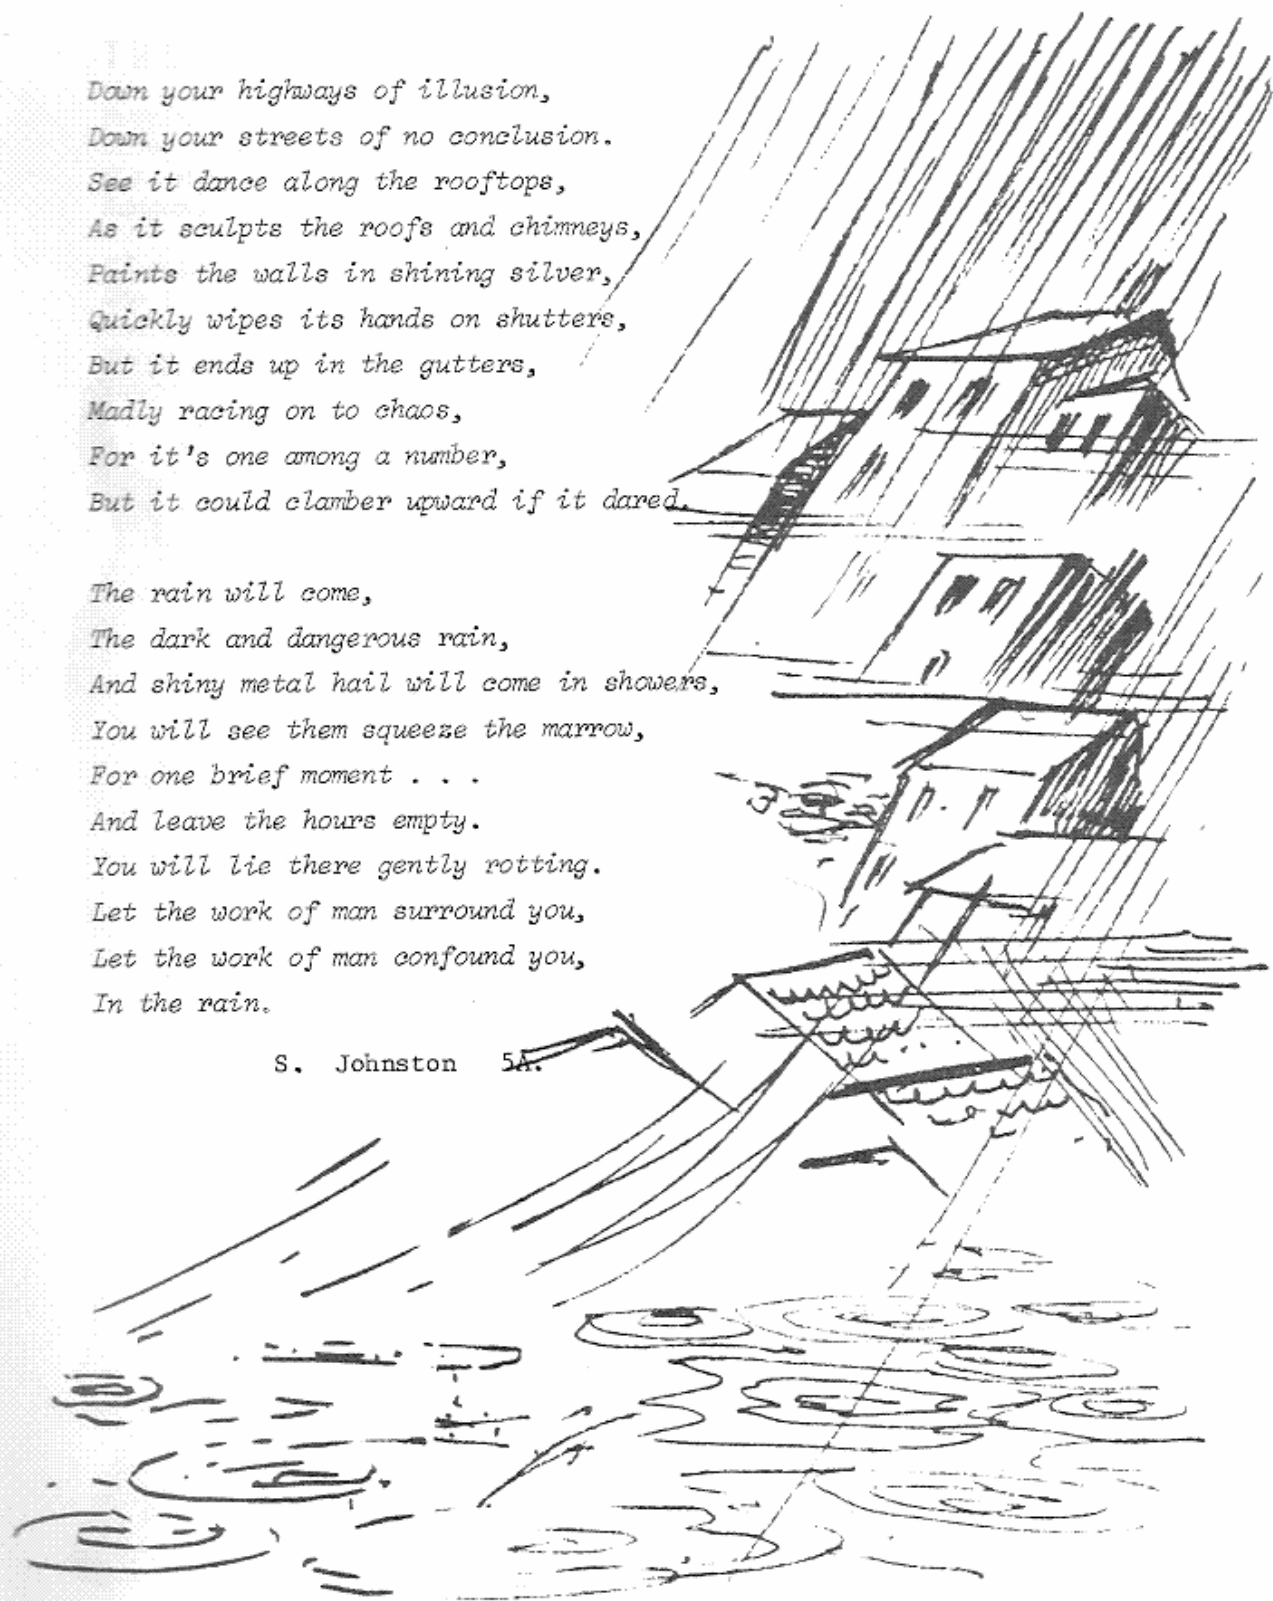 Down your highways of illusion,
Down your streets of no conclusion.
See it dance along the rooftops,
As it sculpts the roofs and chimneys,
Paints the walls in shining silver,
Quickly wipes its hands on shutters,
But it ends up in the gutters,
Madly racing on to chaos,
For it's one among a number,
But it could clamber upward if it dared.
The rain will come,
The dark and dangerous rain,
And shiny metal hail will come in showers,
You will see them squeeze the marrow,
For one brief moment . . .
And leave the hours empty.
You will lie there gently rotting.
Let the work of man surround you,
Let the work of man confound you,
In the rain.
S. Johnston 5A.